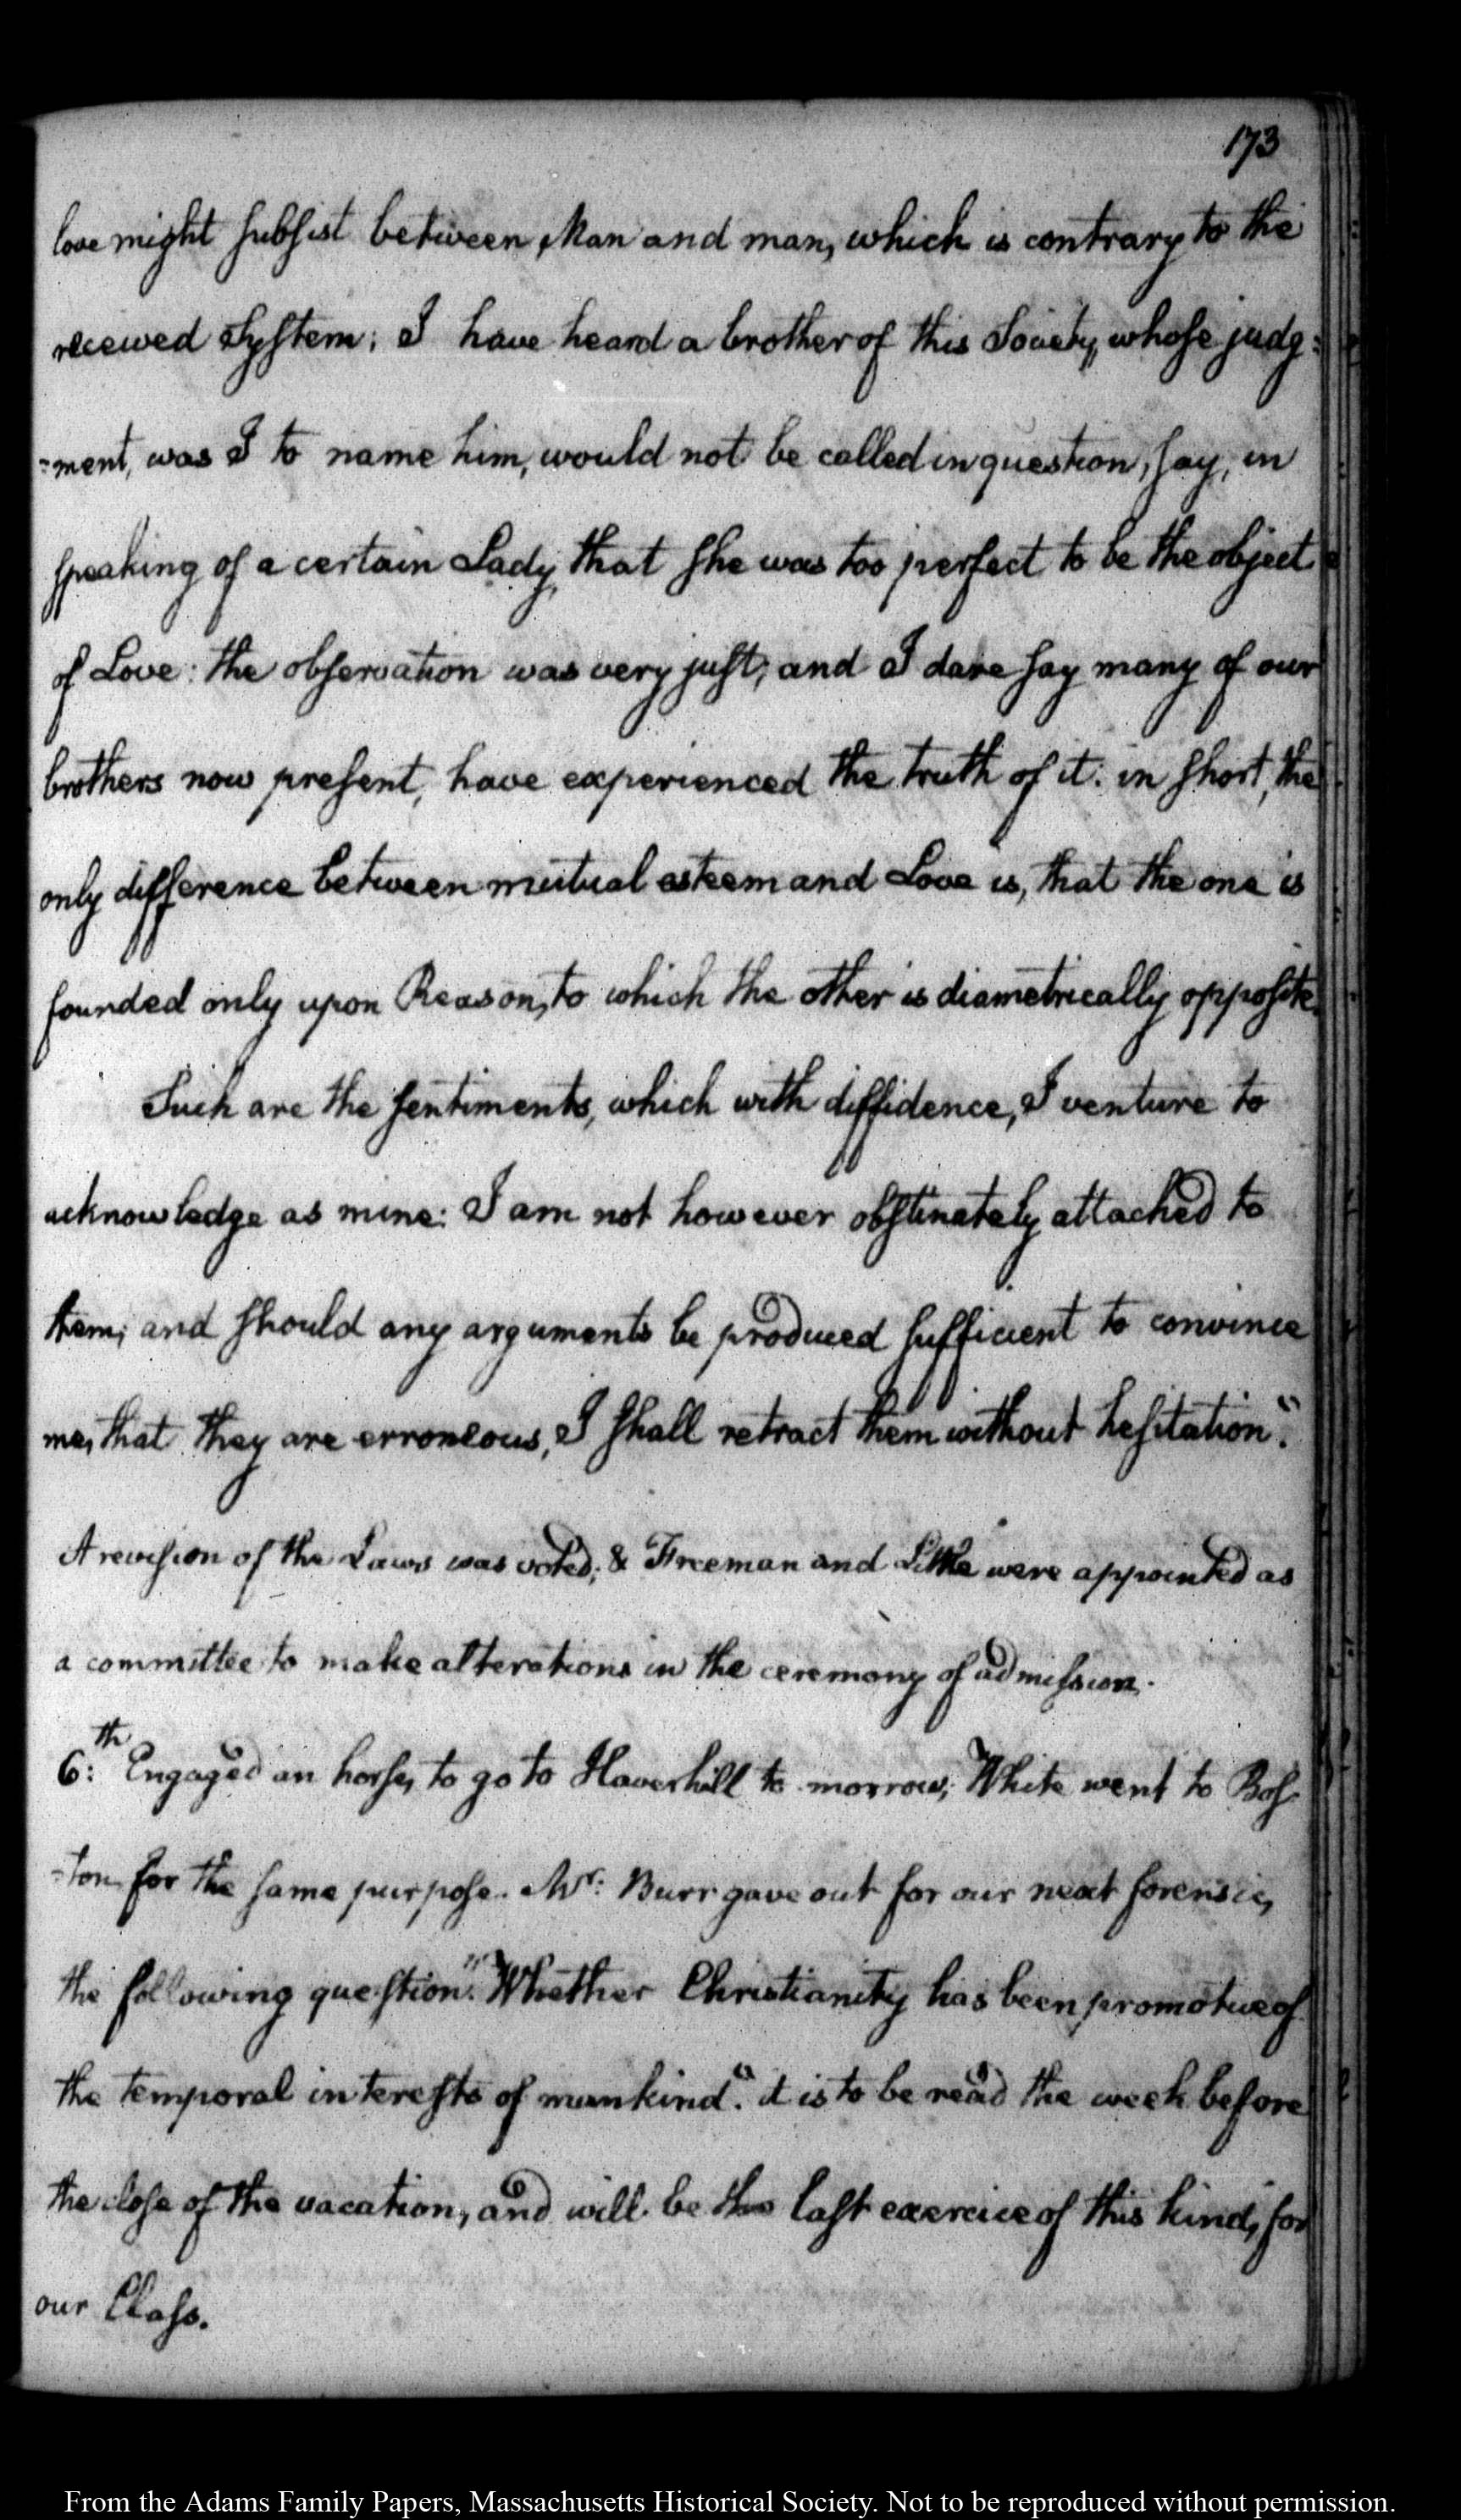 173
love might subsist between Man and man, which is contrary to the
received System; I have heard a brother of this Society, whose judg=
=ment, was I to name him, would not be called in question, say, in
speaking of a certain Lady, that she was too perfect to be the object
of Love: the observation was very just; and I dare say many of our
brothers now present, have experienced the truth of it: in short, the
only difference between mutual esteem and Love is, that the one is
founded only upon Reason, to which the other is diametrically opposite.
Such are the sentiments, which with diffidence, I venture to
acknowledge as mine: I am not however obstinately attached to
them; and should any arguments be produced sufficient to convince
me, that they are erroneous, I shall retract them without hesitation."
A revision of the Laws was voted; & Freeman and Little were appointed as
a committee to make alterations in the ceremony of admission.
6:th Engaged an horse, to go to Haverhill to morrow; White went to Bos-
-ton for the same purpose. Mr: Burr gave out for our next forensic,
the following question. "Whether Christianity has been promotive of
the temporal interests of mankind." it is to be read the week before
the close of the vacation, and will be the last exercice of this kind, for
our Class.
From the Adams Family Papers, Massachusetts Historical Society. Not to be reproduced without permission.